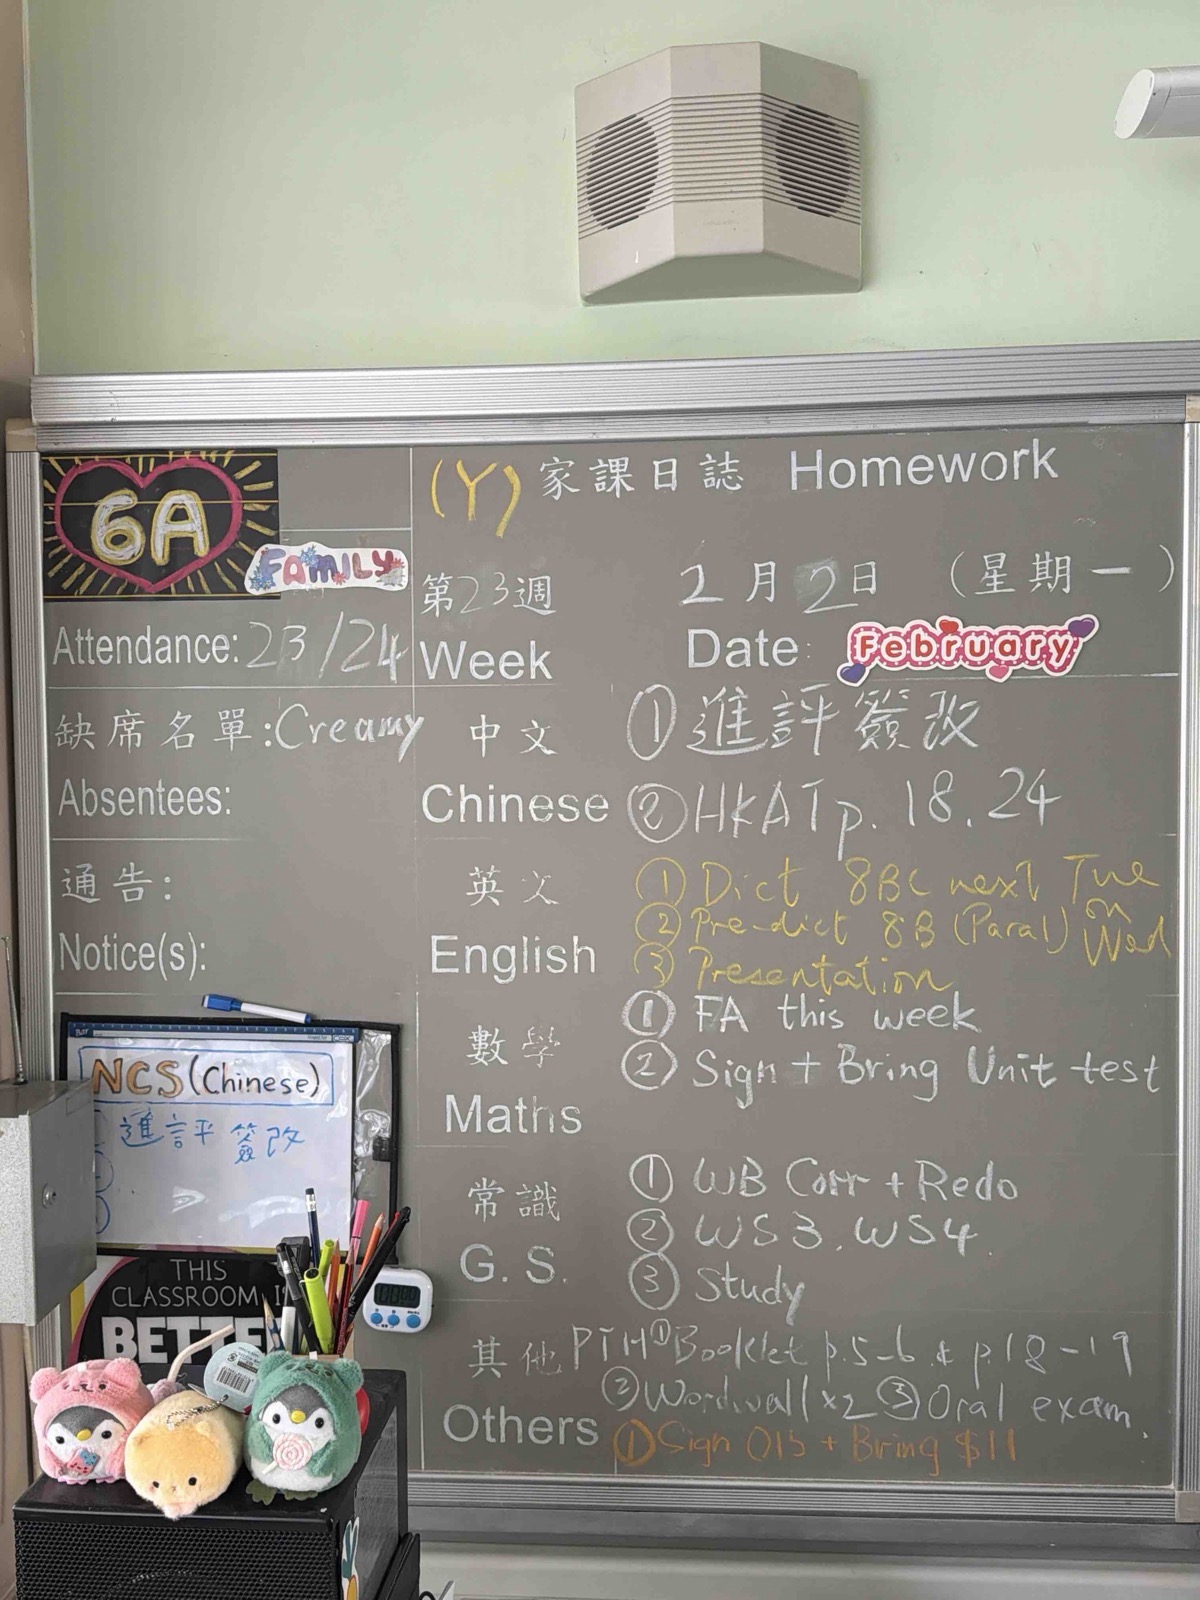 6A
FAMILY
Attendance: 23/24
缺席名單:Creamy
Absentees:
通告:
Notice(s):
NCS(Chinese)
進評簽改
THIS
CLASSROOM
(Y) 家課日誌 Homework
第23週 2月2日 (星期一)
Week Date: February
中文 ① 進評簽改
Chinese ② HKAT p. 18. 24
英文 ① Dict 8BC next Tue
② Pre-dict 8B (Para1) on Wed
English ③ Presentation
① FA this week
數學 ② Sign + Bring Unit test
Maths
常識 ① WB Corr + Redo
② WS3. WS4.
G. S. ③ Study
其他 PTH ① Booklet p.5-6 & p.18-19
② Wordwall x2 ③ Oral exam.
Others ① Sign 015 + Bring $11